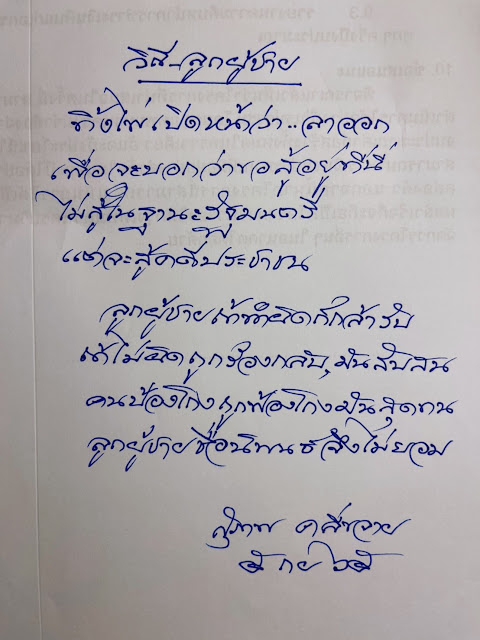 วิถี..ลูกผู้ชาย
ทิ้งไพ่เปิดหน้าว่า..ลาออก
เพื่อจะบอกว่าขอสู้อยู่ที่นี่
ไม่สู้ในฐานะรัฐมนตรี
แต่จะสู้คดีประชาชน
ลูกผู้ชายถ้าทำผิดก็กล้ารับ
ถ้าไม่ผิดถูกร้องกลับ,มันสับสน
คนป้องโกงถูกฟ้องโกงมันสุดทน
ลูกผู้ชายชื่อนิพนธ์จึงไม่ยอม
สุภาพ คลี่ขจาย
๕ กย ๖๕